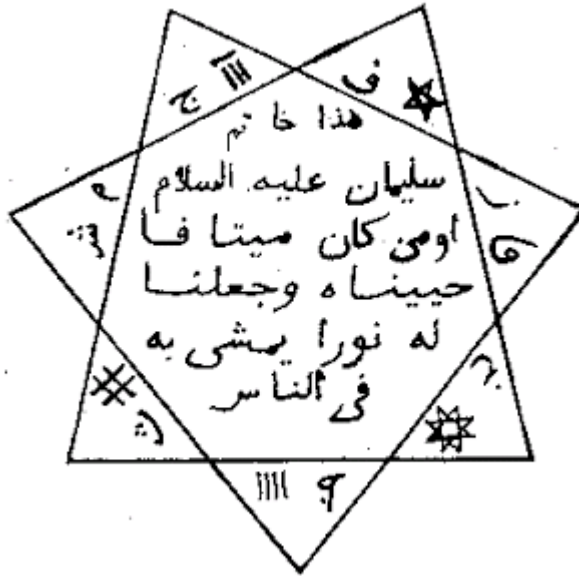 هذا خا تم
سليمان عليه السلام
اومن كان ميتا فا
حييناه وجعلنا
له نورا يمشي به
في الناس
ف
ج
ث